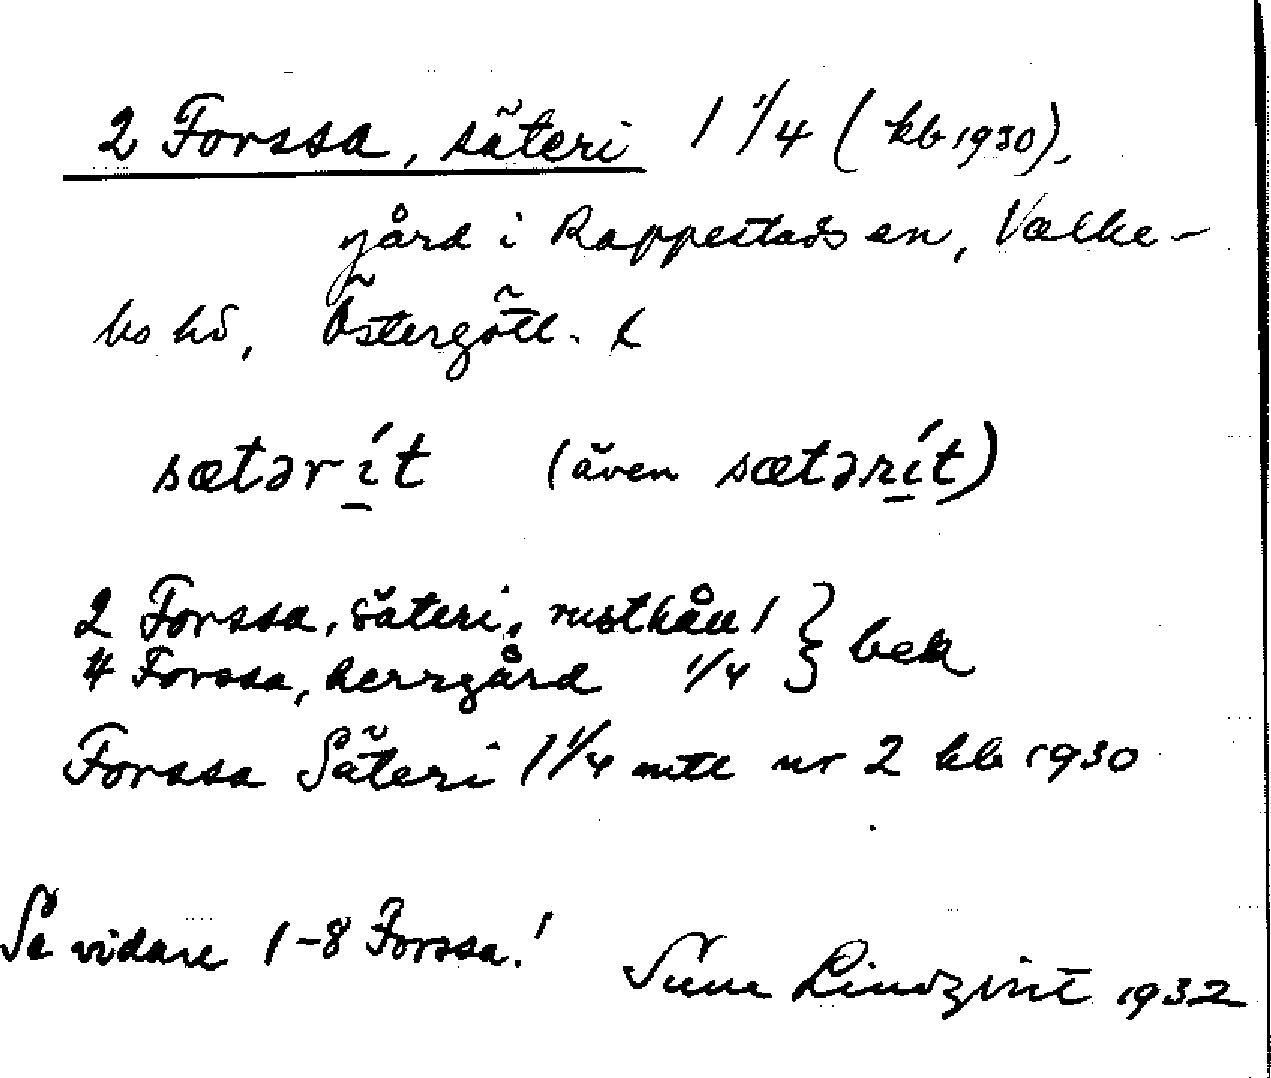 2 Forssa, säteri 1 1/4 (kb 1930),
gård i Rappestads sn, Valke-
bo hd, Östergötl. l
sætərít (även sætəRít)
2 Forssa, säteri, rusthåll 1 } bek
4 Forssa, herrgård 1/4
Forssa Säteri 1 1/4 mtl nr 2 kb 1930
Se vidare 1-8 Forssa!
Sune Lindqvist 1932